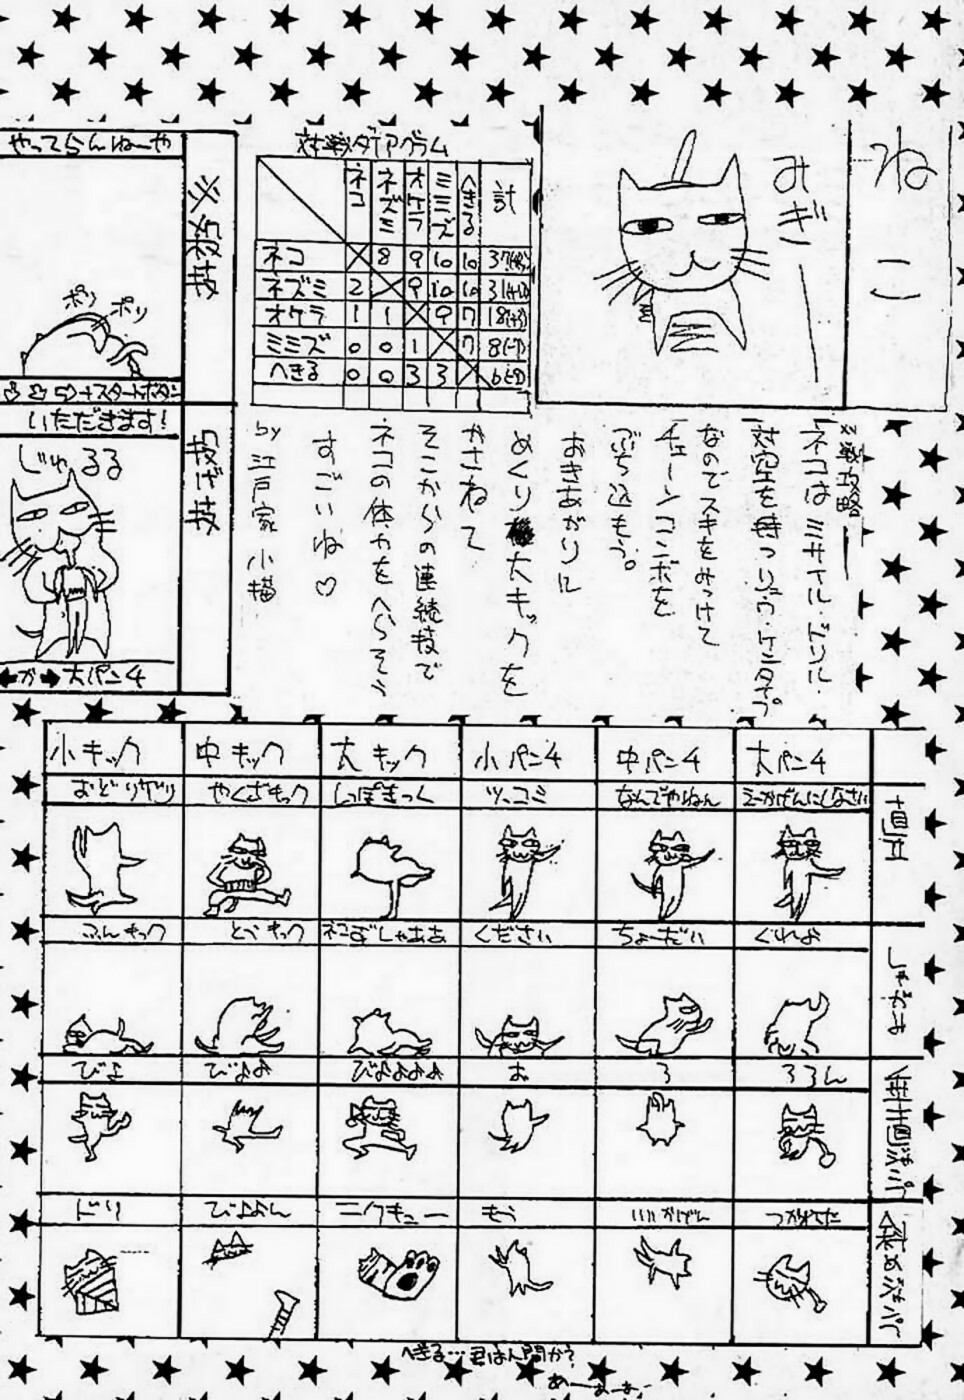 ねこ
みぎー
対戦ダイアグラム
ネコ ネズミ オケラ ミミズ へきる 計
ネコ 8 9 10 10 37
ネズミ 2 9 10 10 31
オケラ 1 1 9 7 18
ミミズ 0 0 1 7 8
へきる 0 0 3 3 6
必殺技
やってらんねーや
ポリ ポリ
スタートボタン
投げ技
いただきます!
じゅるる
←か→大パン4
※戦攻略
ネコはミサイル・ドリル・
対空を持つリュウ・ケンタイプ
なのでスキをみつけて
チェーンコンボを
ぶち込もう。
おきあがりに
めくり大キックを
かさねて
そこからの連続技で
ネコの体力をへらそう
すごいね♡
by 江戸家 小猫
小キック 中キック 大キック 小パン4 中パン4 大パン4
直立
おどりゲリ やくざキック しっぽきっく ツッコミ なんでやねん えーかげんにしなさい
しゃがみ
ふんキック とべキック ネコずしゃああ ください ちょーだい くれよ
垂直ジャンプ
びよ びよよ びよよよよ お ろ ろろん
斜めジャンプ
ドリ びよよん ニクキュー もう いいかげん つかれた
へきる…君は人間か?
あーあぁ;